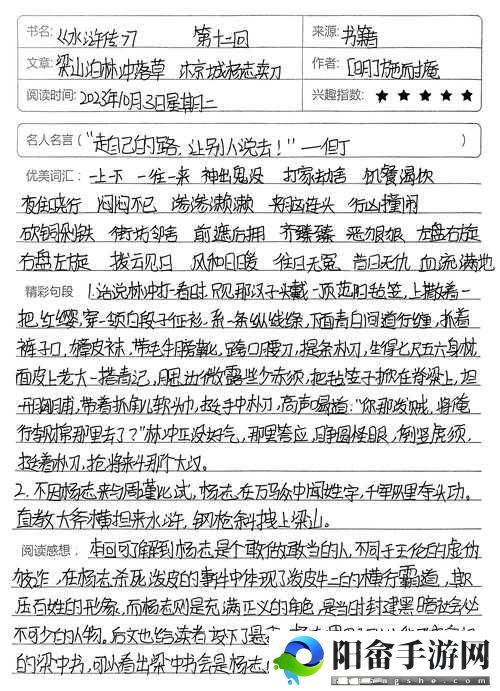 书名: 《水浒传》 第十二回 来源: 书籍
文章: 梁山泊林冲落草 汴京城杨志卖刀 作者: [明]施耐庵
阅读时间: 2023年10月3日星期二 兴趣指数: ★★★★★
名人名言 ("走自己的路,让别人说去!"—但丁 )
优美词汇: 一上一下 一往一来 神出鬼没 打家劫舍 饥餐渴饮
夜住晓行 闷闷不已 荡荡濑濑 行凶撞闹
砍铜剁铁 街坊邻舍 前遮后拥 齐臻臻 恶狠狠 左盘右旋
右盘左旋 拨云见日 风和日暖 往日无冤 当日无仇 血流满地
精彩句段 1.话说林冲打一看时,只见那汉子头戴一顶范阳毡笠,上撒着一
把红缨,穿一领白段子征衫,系一条纵线绦,下面青白间道行缠,抓着
裤子口,獐皮袜,带毛牛膀靴,跨口腰刀,提条朴刀,生得七尺五六身材,
面皮上老大一搭青记,腮边微露些少赤须,把毡笠子掀在脊梁上,坦
开胸脯,带着抓角儿软头巾,挺手中朴刀,高声喝道:"你那泼贼,将俺
行李财帛那里去了?"林冲正没好气,那里答应,睁圆怪眼,倒竖虎须,
挺着朴刀,抢将来斗那个大汉。
2.不因杨志来与周谨比试,杨志在万马众中闻姓字,千军队里夺头功。
直教大斧横担来水浒,钢枪斜拽上梁山。
阅读感想: 本回可了解到杨志是个敢做敢当的人,不同于王伦的虚伪
狡诈,在杨志杀死泼皮的事件中体现了泼皮牛二的横行霸道,欺
压百姓的形象,而杨志则是充满正义的角色,是当时封建黑暗社会处
不可少的人物。后文也给读者设下了悬
的梁中书,可以看出梁中书会是杨志
阳畲手游网